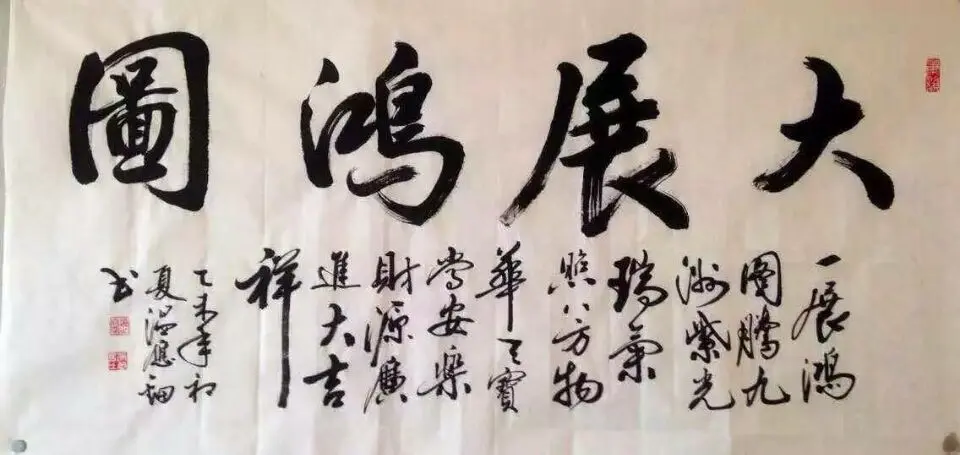 大展鴻圖
一展鴻
圖鵬九
洲紫光
瑞氣
照八方物
華天寶
常安樂
財源廣
進大吉
祥
乙未年初
夏温
书